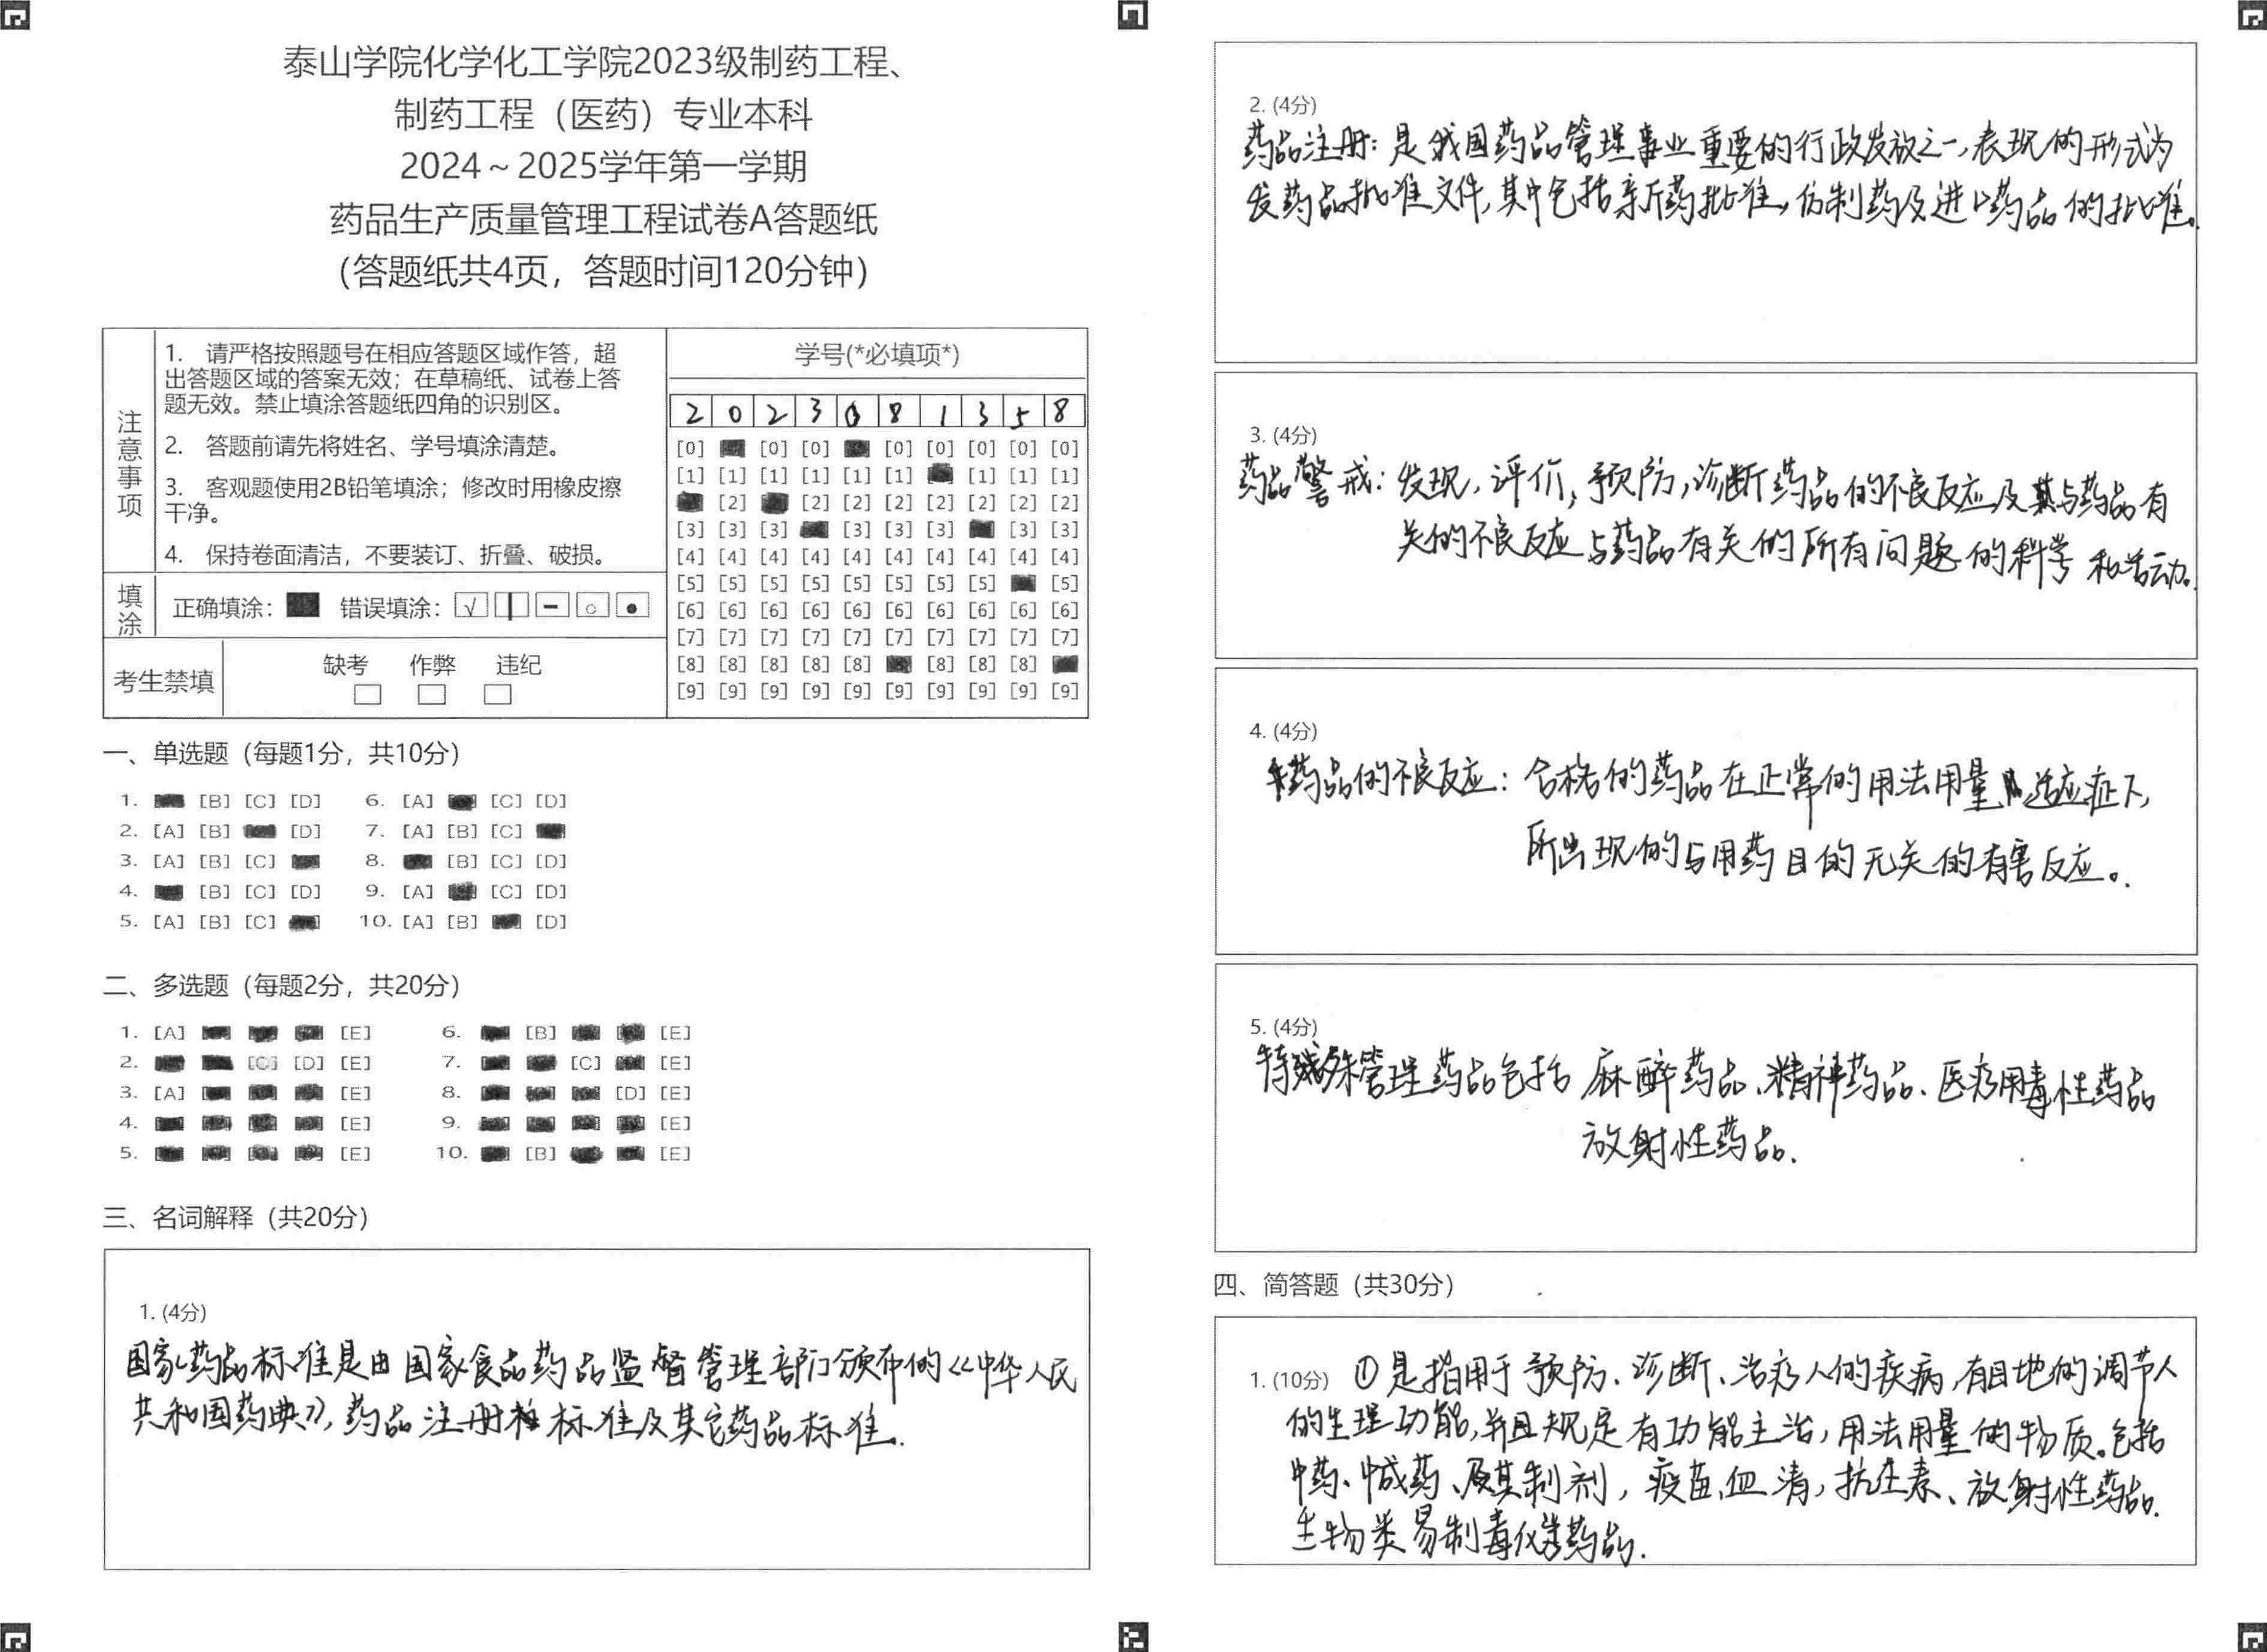 泰山学院化学化工学院2023级制药工程、
制药工程（医药）专业本科
2024～2025学年第一学期
药品生产质量管理工程试卷A答题纸
（答题纸共4页，答题时间120分钟）
注意事项
1. 请严格按照题号在相应答题区域作答，超
出答题区域的答案无效；在草稿纸、试卷上答
题无效。禁止填涂答题纸四角的识别区。
2. 答题前请先将姓名、学号填涂清楚。
3. 客观题使用2B铅笔填涂；修改时用橡皮擦
干净。
4. 保持卷面清洁，不要装订、折叠、破损。
填涂
正确填涂： 错误填涂：
考生禁填
缺考 作弊 违纪
学号(*必填项*)
2 0 2 3 0 8 1 3 5 8
[0] [0] [0] [0] [0] [0] [0] [0]
[1] [1] [1] [1] [1] [1] [1] [1] [1]
[2] [2] [2] [2] [2] [2] [2] [2]
[3] [3] [3] [3] [3] [3] [3] [3]
[4] [4] [4] [4] [4] [4] [4] [4] [4] [4]
[5] [5] [5] [5] [5] [5] [5] [5] [5]
[6] [6] [6] [6] [6] [6] [6] [6] [6] [6]
[7] [7] [7] [7] [7] [7] [7] [7] [7] [7]
[8] [8] [8] [8] [8] [8] [8] [8]
[9] [9] [9] [9] [9] [9] [9] [9] [9] [9]
一、单选题（每题1分，共10分）
1. [B] [C] [D] 6. [A] [C] [D]
2. [A] [B] [D] 7. [A] [B] [C]
3. [A] [B] [C] 8. [B] [C] [D]
4. [B] [C] [D] 9. [A] [C] [D]
5. [A] [B] [C] 10. [A] [B] [D]
二、多选题（每题2分，共20分）
1. [A] [E] 6. [B] [E]
2. [C] [D] [E] 7. [C] [E]
3. [A] [E] 8. [D] [E]
4. [E] 9. [E]
5. [E] 10. [B] [E]
三、名词解释（共20分）
1. (4分)
国家药品标准是由国家食品药品监督管理部门颁布的《中华人民
共和国药典》，药品注册标准及其它药品标准.
2. (4分)
药品注册：是我国药品管理事业重要的行政发放之一，表现的形式为
发药品批准文件，其中包括新药批准，仿制药及进口药品的批准。
3. (4分)
药品警戒：发现，评价，预防，诊断药品的不良反应及其与药品有
关的不良反应与药品有关的所有问题的科学和活动.
4. (4分)
药品的不良反应：合格的药品在正常的用法用量、适应症下，
所出现的与用药目的无关的有害反应。
5. (4分)
特殊管理药品包括 麻醉药品、精神药品、医疗用毒性药品
放射性药品.
四、简答题（共30分）
1. (10分) ①是指用于预防、诊断、治疗人的疾病，有目地的调节人
的生理功能，并且规定有功能主治，用法用量的物质。包括
中药、中成药、及其制剂，疫苗、血清，抗生素、放射性药品.
生物类易制毒化学药品.